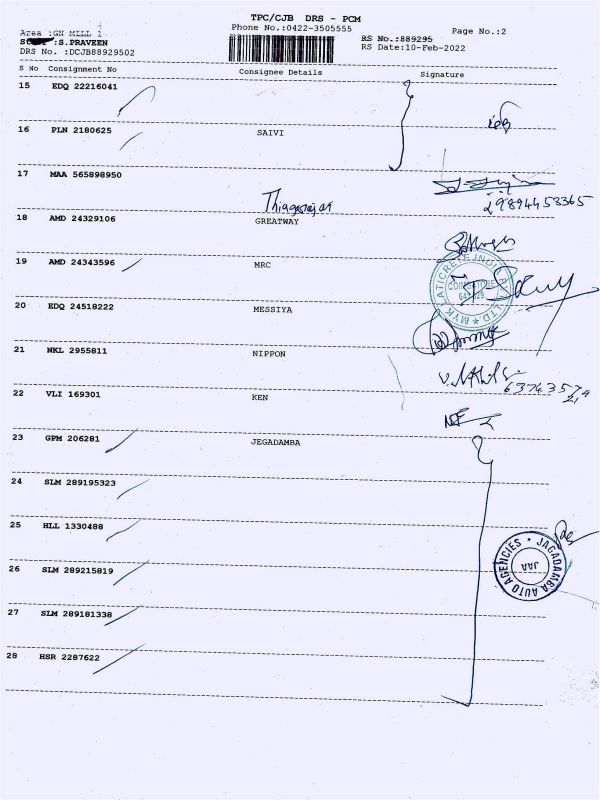 TPC/CJB DRS - PCM
Phone No.:0422-3505555
Page No.:2
Area :GN MILL 1
:S.PRAVEEN
DRS No. :DCJB88929502
RS No.:889295
RS Date:10-Feb-2022
S No Consignment No Consignee Details Signature
15 EDQ 22216041
16 PLN 2180625 SAIVI
17 MAA 565898950
Thiagarajar
29894453365
18 AMD 24329106 GREATWAY
19 AMD 24343596 MRC
MYK LATICRETE INDIA LTD.
20 EDQ 24518222 MESSIYA
21 NKL 2955811 NIPPON
22 VLI 169301 KEN
23 GPM 206281 JEGADAMBA
24 SLM 289195323
25 HLL 1330488
JAGADAMBA AUTO AGENCIES
JAA
26 SLM 289215819
27 SLM 289181338
28 HSR 2287622